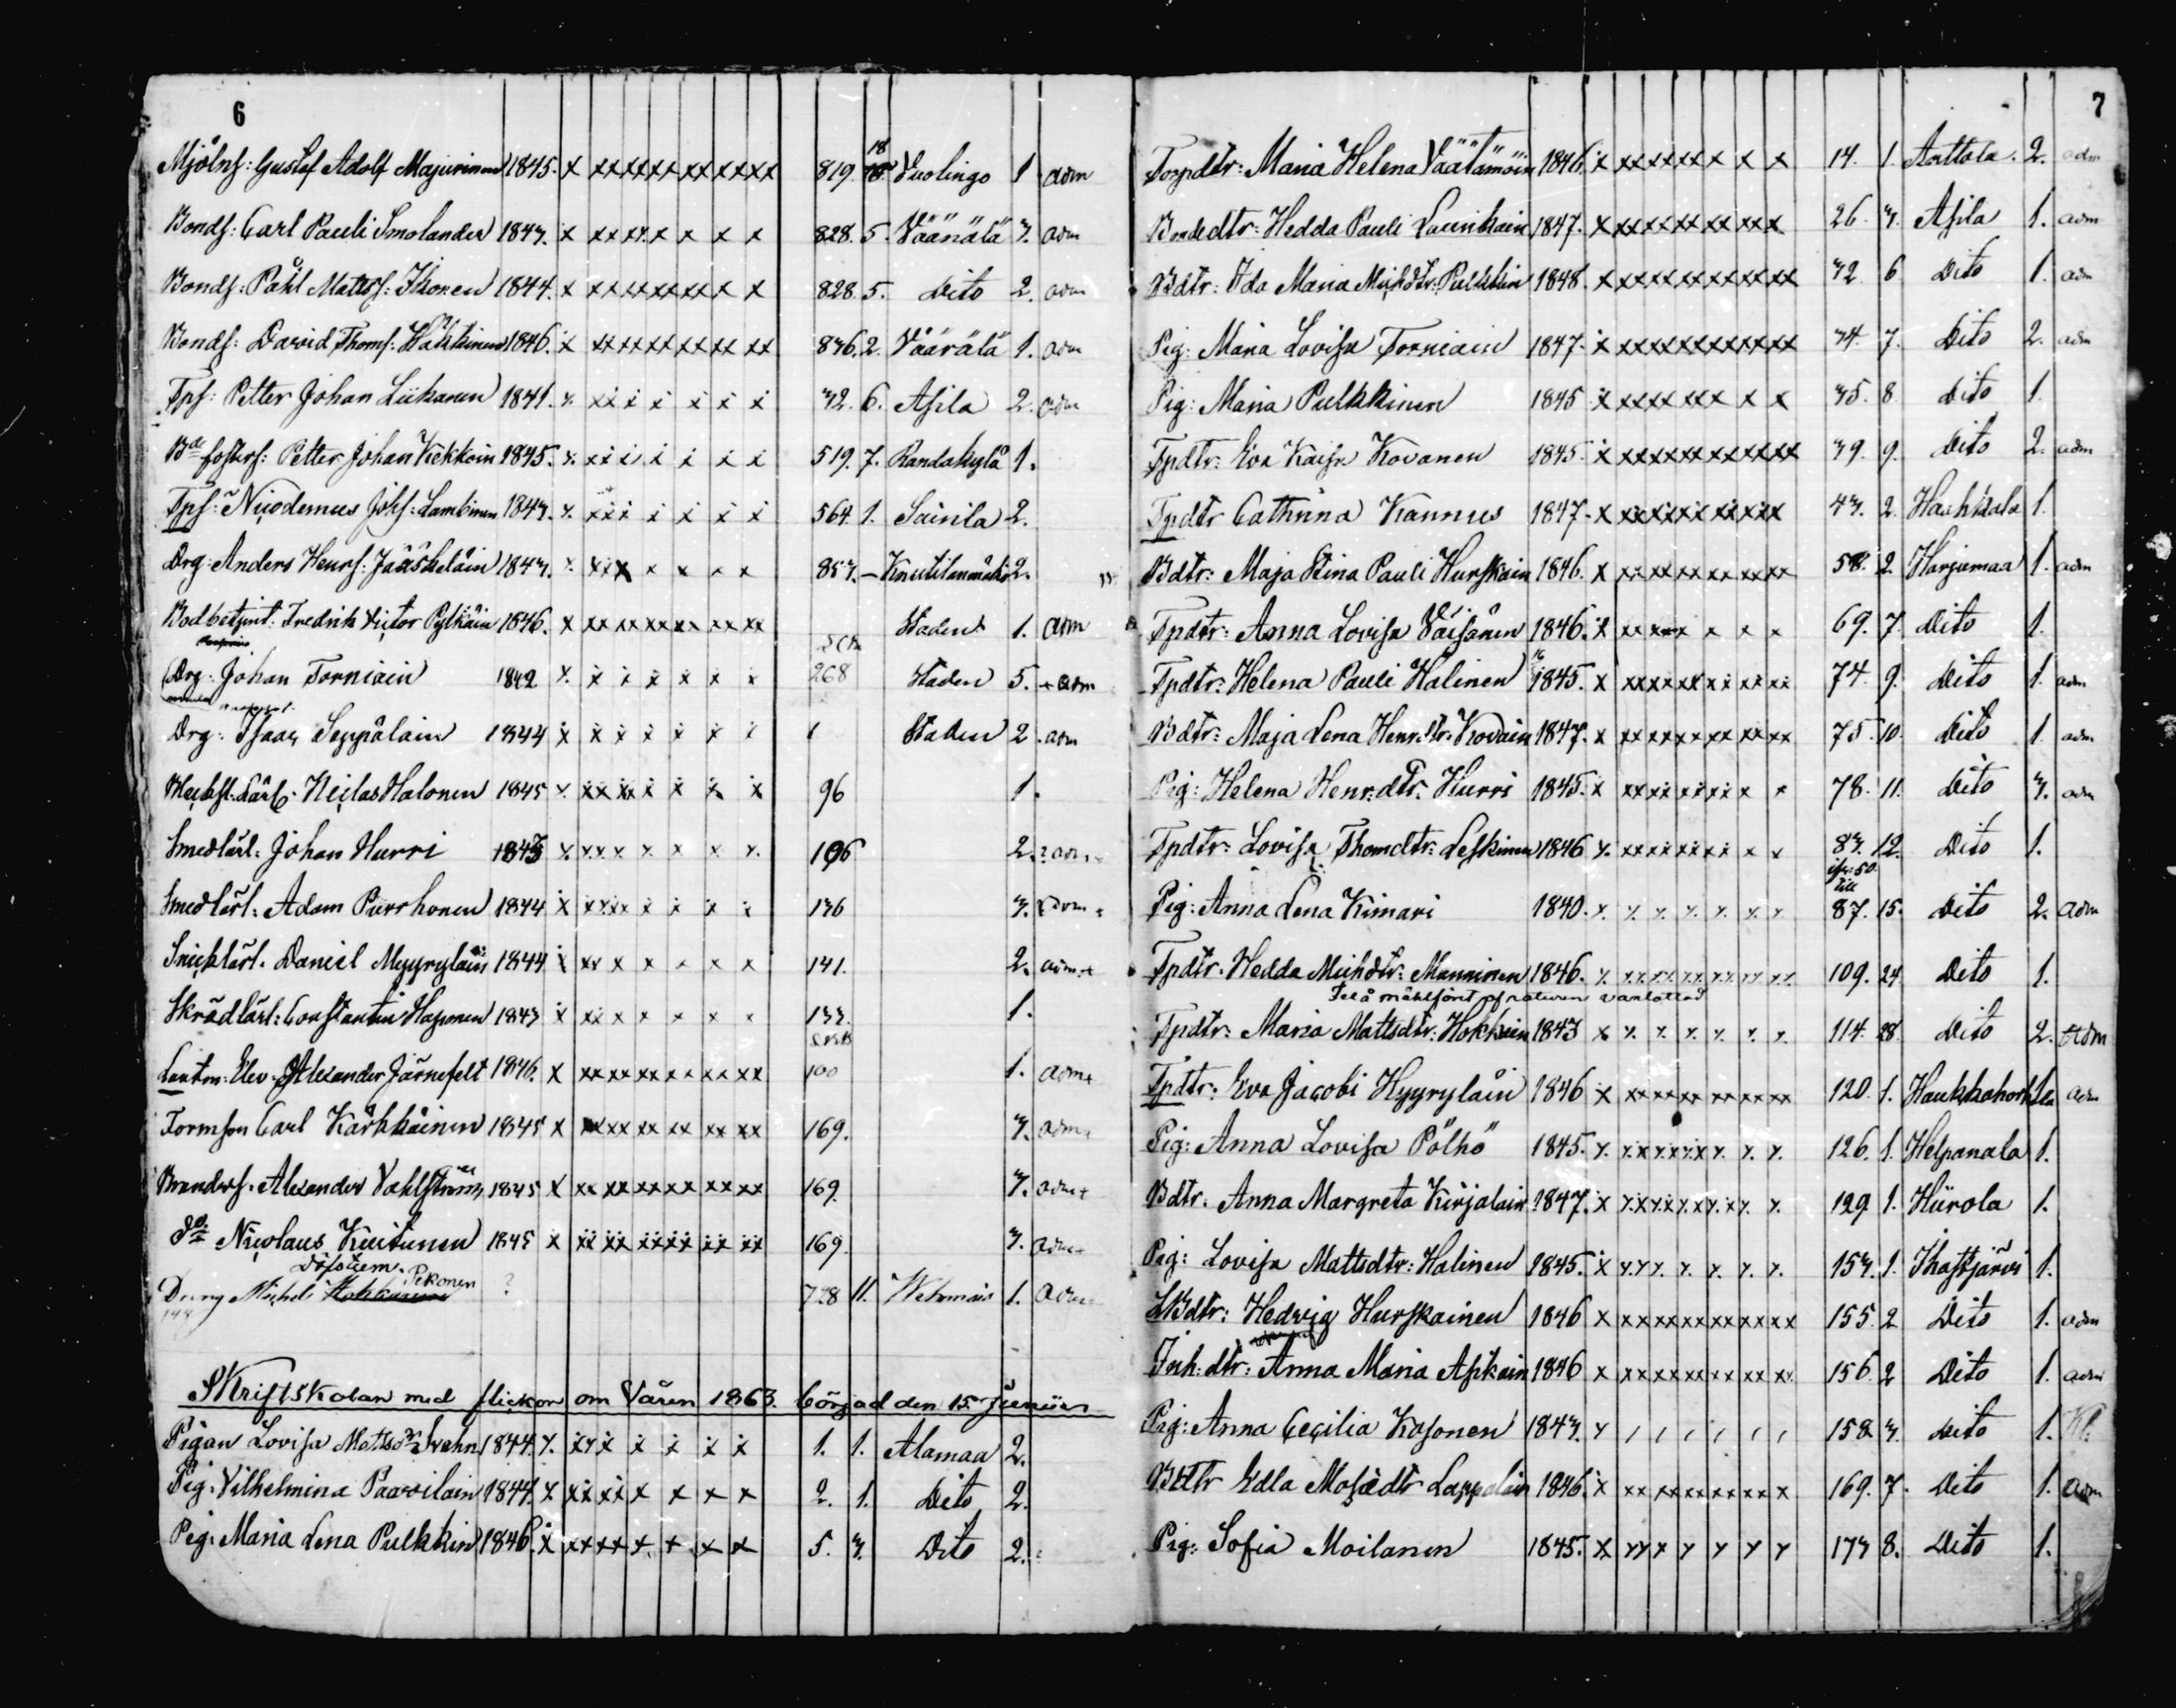 6
Mjölns: Gustaf Adolf Majurinen 1845. x xx xx xx xx xx xx 819. 18 Vuolingo 1 adm
Bonds: Carl Pauli Smolander 1843. x xx xx x x x x 828. 5. Väänälä 3. adm
Bonds: Påhl Matts: Ikonen 1844. x xx xx xx xx x x 828. 5. Dito 2. adm
Bonds: David Thoms: Häkkinen 1846. x xx xx xx xx xx 836. 2. Väärälä 1. adm
Tps: Petter Johan Liikanen 1841. x xx x x x x x 32. 6. Asila 2. adm
Bde fosters: Petter Johan Kekkoin 1845. x xx x x x x x 519. 7. Randakylä 1.
Tps: Nicodemus Johs: Lambinen 1843. x xxx x x x x 564. 1. Sairila 2.
Drg: Anders Henrs: Jääskeläin 1843. x xxx x x x x 853. – 2.
Bodbetjent. Fredrik Victor Pylkäin 1846. x xx xx xx xx xx xx Staden 1. adm
Drg: Johan Torniain 1842 x x x x x x x 268 Staden 5. adm
Drg: Isaac Seppäläin 1844 x x x x x x x 1 Staden 2. adm
Halonen 1845 x xx xx x x x x 96 1.
Smedlärl: Johan Hurri 1843 x xx x x x x x 106 2. adm
Smedlärl: Adam Purrhonen 1844 x xxxx x x x x 136 3. adm
Snicklärl. Daniel Myyryläin 1844 x xx x x x x x 141. 2. adm
Skrädlärl: Constantin Haponen 1843 x xx x x x x x 133. 1.
Lantm: Elev. Alexander Järnefelt 1846. x xx xx xx xx xx xx 100 1. adm
Formson Carl Kärkkäinen 1845 x xx xx xx xx xx xx 169. 3. adm
Alexander Vahlström 1845 x xx xx xx xx xx xx 169. 3. adm
Do Nicolaus Kuitunen 1845 x xx xx xx xx xx xx 169. 3. adm
Pekonen
Dreng Michel ? 728 11. Wehmais 1. adm
Skriftskolan med flickor om Våren 1863. börjad den 15. Junius
Pigan Lovisa Mattsdr 1844. x. xx x x x x x 1. 1. Alamaa 2.
Pig: Vilhelmina Paavilain 1844. x xx xx x x x x 2. 1. Dito 2.
Pig: Maria Lena Pulkkin 1846. x xx xx x x x x 5. 3. Dito 2.
7
Torpdtr: Maria Helena Väätämöin 1846. x xx xx xx x x x 14. 1. Anttola. 2. adm
Bondedtr: Hedda Pauli Laurikain 1847. x xx xx xx xx xx x 26. 3. Asila 1. adm
Bdtr: Ida Maria Michdtr: Pulkkin 1848. x xx xx xx xx xx xx 32 6 Dito 1. adm
Pig: Maria Lovisa Torniain 1847. x xx xx xx xx xx xx 34. 7. Dito 2. adm
Pig: Maria Pulkkinen 1845 x xx xx xx x x x 35. 8 Dito 1.
Tpdtr: Eva Kaisa Kovanen 1845. x xx xx xx xx xx xx 39. 9. Dito 2. adm
Tpdtr Cathrina Kannus 1847. x xx xx xx xx xx 43. 2. 1.
Bdtr: Maja Stina Pauli Hurskain 1846. x xx xx xx xx xx xx 58. 2. Harjumaa 1. adm
Tpdtr: Anna Lovisa Väisänen 1846. x xx xx x x x x 69. 7. Dito 1.
Tpdtr: Helena Pauli Halinen 1845. x xx xx xx xx xx xx 74. 9. Dito 1. adm
Bdtr: Maja Lena Henr.dtr: Kovain 1847. x xx xx xx xx xx xx 75. 10. Dito 1. adm
Pig: Helena Henr:dtr: Hurri 1845. x xx xx xx xx x x 78. 11. Dito 3. adm
Tpdtr: Lovisa Thomdtr: Leskinen 1846 x. xx xx xx xx x x 83. 12. Dito 1.
till
Pig: Anna Lena Kimari 1840. x. x. x. x. x. x. x. 87. 15. Dito 2. adm
Tpdtr: Hedda Michdtr: Manninen 1846. x. xx xx xx xx xx xx 109. 24. Dito 1.
målfört af naturen vanlottad
Tpdtr: Maria Mattsdtr: Hokkain 1843 x x. x. x. x. x. x. 114. 28. Dito 2. adm
Tpdtr: Eva Jacobi Hyyryläin 1846 x xx xx xx xx xx xx 120. 1. 1. adm
Pig: Anna Lovisa Pölhö 1845. x. xx xx xx x. x. x. 126. 1. Helpanala 1.
Bdtr: Anna Margreta Kirjalain 1847. x xx xx xx xx x x. 129 1. Hiirola 1.
Pig: Lovisa Mattsdtr: Halinen 1845. x xx x. x. x. x. x. 153. 1. Ihastjärvi 1.
Bdtr: Hedvig Hurskainen 1846 x xx xx xx xx xx xx 155. 2 Dito 1. adm
Inh:dtr: Anna Maria Asikain 1846 x xx xx xx xx xx xx 156. 2 Dito 1. adm
Pig: Anna Cecilia Kasonen 1843. x / / / / / / 158 3. Dito 1.
Bdtr Edla Mosesdtr Lappalain 1846. x xx xx xx xx x x 169. 7. Dito 1. adm
Pig: Sofia Moilanen 1845. x xx x x x x x 173 8. Dito 1.